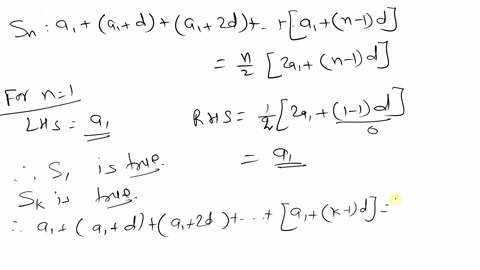 Sn: a₁+(a₁+d)+(a₁+2d)+--+[a₁+(n-1)d]
= n/2 [2a₁+(n-1)d]
For n=1
LHS = a₁
RHS = 1/2[2a₁+(1-1)d]
0
= a₁
∴ S₁ is true.
Sk is true.
∴ a₁+(a₁+d)+(a₁+2d)+--+[a₁+(k-1)d]=